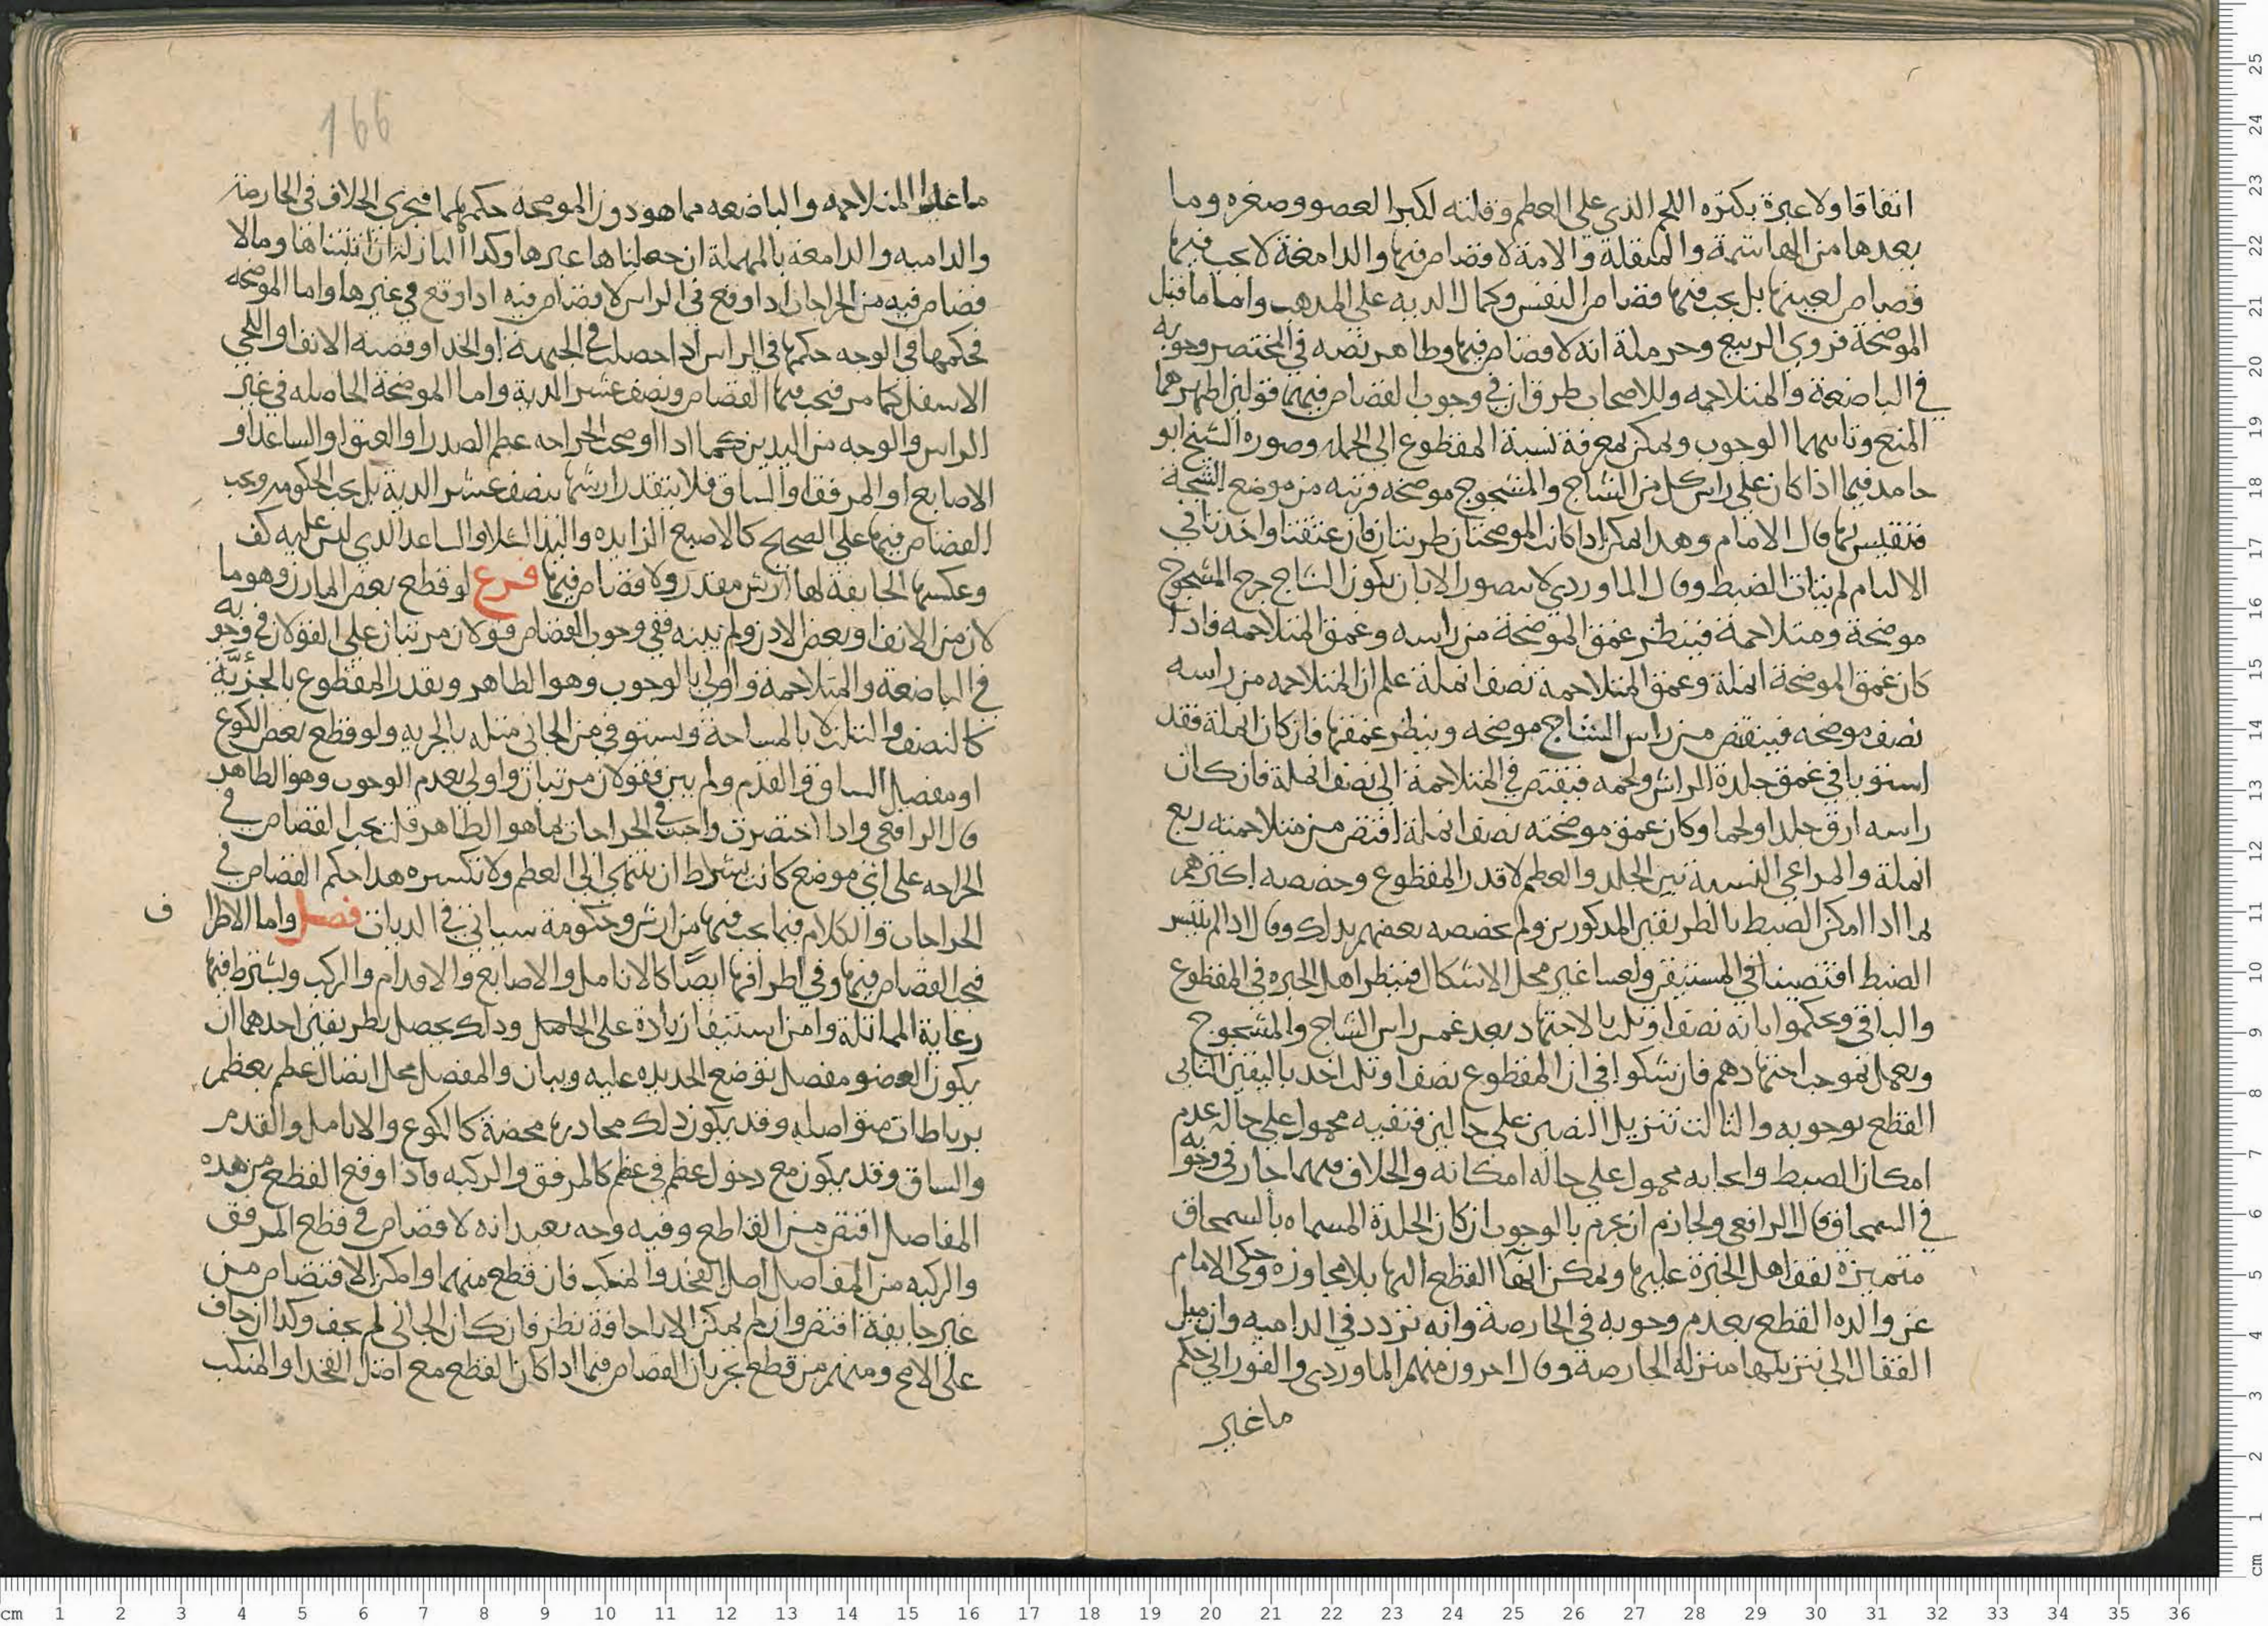 اتفاقا ولا عبرة بكثره اللحم الذي على العظم وقلته لكبر العضو وصغره وما
بعدها من الهاشمة والمنقلة والامة لا قصاص فيها والدامغة لا يجب فيها
قصاص لعينها بل يجب فيها قصاص النفس وكمال الديه على المذهب واما ما قبل
الموضحة فروي الربيع وحرملة انه لا قصاص فيها وظاهر نصه في المختصر وجوبه
في الباضعة والمتلاحمه وللاصحاب طرق ان في وجوب القصاص فيهما قولين اظهرهما
المنع وثانيهما الوجوب ويمكن لمعرفة نسبة المقطوع الى الجمله وصوره الشيخ ابو
حامد فيما اذا كان على راس كل من الشاج والمشجوج موضحه قريبه من موضع الشجة
فنقيس بها قال الامام وهذا يمكن اذا كانت الموضحتان طريتان فان عتقتا واخذتا في
الالتيام لم يتات الضبط وقال الماوردي لا يتصور الا بان يكون الشاج جرح المشجوج
موضحة ومتلاحمة فينظر عمق الموضحة من راسه وعمق المتلاحمه فاذا
كان عمق الموضحة انملة وعمق المتلاحمة نصف انملة علم ان المتلاحمه من راسه
نصف موضحه فيقتص من راس الشاج موضحه وينظر عمقها فان كان انملة فقد
استويا في عمق جلدة الراس ولحمه فيقتص في المتلاحمة الى نصف انملة فان كان
راسه ارق جلدا ولحما وكان عمق موضحته نصف انملة اقتص من متلاحمته ربع
انملة والمراعي النسبة بين الجلد والعظم لا قدر المقطوع وخصصه اكثرهم
بما اذا امكن الضبط بالطريقين المذكورين ولم يخصصه بعضهم بذلك وقال اذا لم يتيسر
الضبط اقتصينا في المستيقن ولعسا غير محل الاشكال فينظر اهل الخبره في المقطوع
والباقي ويحكموا بانه نصف او ثلث بالاجتهاد بعد غمس راس الشاج والمشجوج
ويعمل بموجب اجتهادهم فان شكوا في ان المقطوع نصف او ثلث اخذ باليقين الثاني
القطع بوجوبه والثالث تنزيل النصين على حالين فنفيه محمول على حاله عدم
امكان الضبط وايجابه محمول على حاله امكانه والخلاف فيهما جار في وجوبه
في السمحاق قال الرافعي ولجازم ان يجزم بالوجوب ان كان الجلدة المسماه بالسمحاق
متميزة يقف اهل الخبرة عليها ويمكن انها القطع اليها بلا مجاوزه وحكى الامام
عن والده القطع بعدم وجوبه في الحارصة وانه تردد في الداميه وان ميل
القفال الى تنزيلها منزله الحارصة وقال اخرون منهم الماوردي والفوراني حكم
ما غير
166
ما غير المتلاحمه والباضعه مما هو دون الموضحه حكمهما فيجري الخلاف في الحارصة
والداميه والدامعة بالمهملة ان جعلناها غيرها وكذا البازلة ان اثبتناها وما لا
قصاص فيه من الجراحات اذا وقع في الراس لا قصاص فيه اذا وقع في غيرها واما الموضحه
فحكمها في الوجه حكمها في الراس اذا حصلت في الجبهة او الخد او قصبه الانف او اللحي
الاسفل كما مر فيجب فيها القصاص ونصف عشر الدية واما الموضحة الحاصله في غير
الراس والوجه من اليدين كما اذا اوضحت الجراحه عظم الصدر او العنق او الساعد او
الاصابع او المرفق او الساق فلا يتقدر ارشها بنصف عشر الدية بل يجب الحكومه ويجب
القصاص فيها على الصحيح كالاصبع الزايده واليد الشلا والساعد الذي ليس عليه كف
وعكسها الجايفة لها ارش مقدر ولا قصاص فيها فرع لو قطع بعض المارن وهو ما
لان من الانف او بعض الاذن ولم يبنه ففي وجوب القصاص قولان مرتبان على القولان في وجوبه
في الباضعة والمتلاحمة واولى بالوجوب وهو الظاهر ويقدر المقطوع بالجزئية
كالنصف والثلث لا بالمساحة ويستوفي من الجاني مثله بالجزيه ولو قطع بعض الكوع
او مفصل الساق والقدم ولم يبن فقولان مرتبان واولى بعدم الوجوب وهو الظاهر
قال الرافعي واذا اختصرت واجبت في الجراحات بما هو الظاهر قلت يجب القصاص في
الجراحه على اي موضع كانت بشرط ان تنتهي الى العظم ولا تكسره هذا حكم القصاص في
الجراحات والكلام فيما يجب فيها من ارش وحكومة سياتي في الديات فصل واما الاطراف
فيجب القصاص فيها وفي اطرافها ايضا كالانامل والاصابع والاقدام والركب ويشترط فيها
رعاية المماثلة وامن استيفا زيادة على الحاصل وذلك يحصل بطريقين احدهما ان
يكون للعضو مفصل توضع الحديده عليه ويبان والمفصل محل اتصال عظم بعظم
برباطات متواصله وقد يكون ذلك محاذرها محضة كالكوع والانامل والقدم
والساق وقد يكون مع دخول عظم في عظم كالمرفق والركبه فاذا وقع القطع من هذه
المفاصل اقتص من القاطع وفيه وجه بعيد انه لا قصاص في قطع المرفق
والركبه من المفاصل اصل الفخد والمنكب فان قطع منهما وامكن الاقتصاص من
غير جايفة اقتص وان لم يمكن الا باجافة نظر فان كان الجاني لم يجف وكذا ان جاف
على الاصح ومنهم من قطع بجريان القصاص فيما اذا كان القطع مع اصل الفخد او المنكب